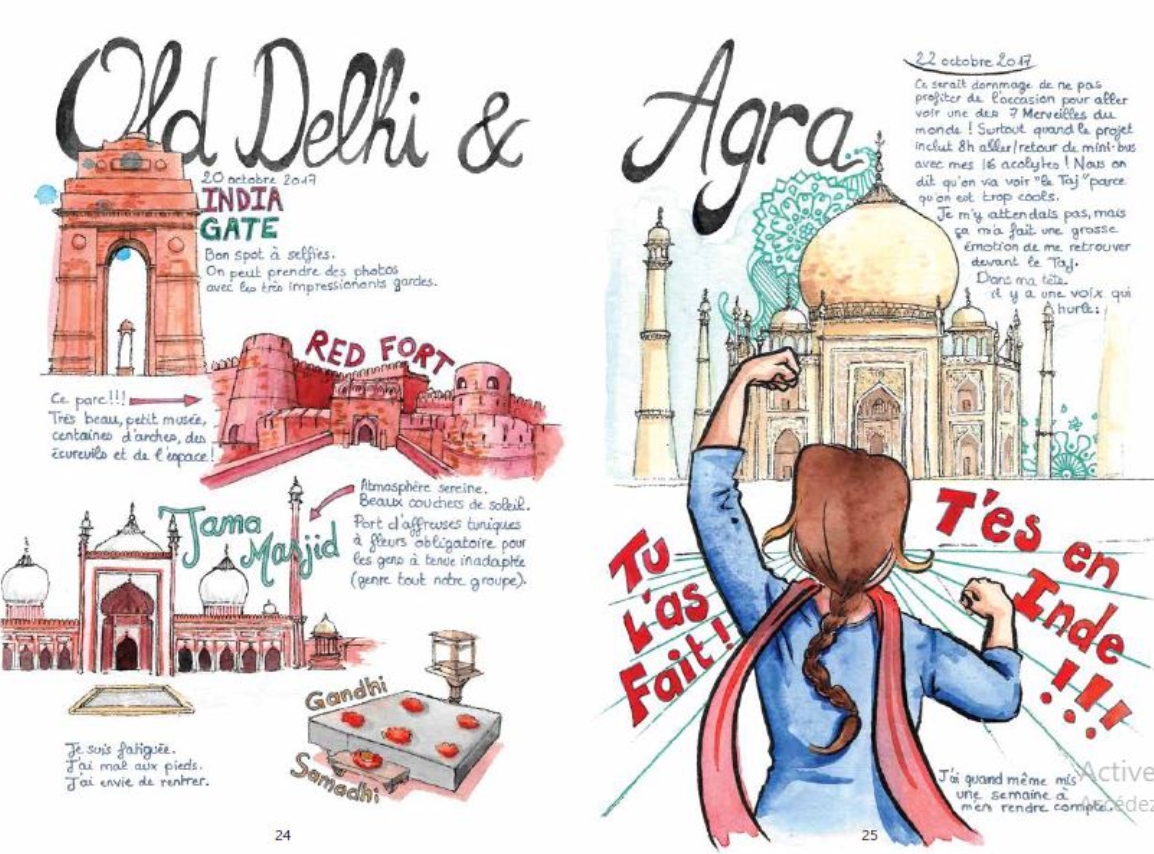 Old Delhi &
20 octobre 2017
INDIA
GATE
Bon spot à selfies.
On peut prendre des photos
avec les très impressionants gardes.
RED FORT
Ce parc!!!
Très beau, petit musée,
centaines d'arches, des
écureuils et de l'espace!
Jama
Masjid
Atmosphère sereine.
Beaux couchers de soleil.
Port d'affreuses tuniques
à fleurs obligatoire pour
les gens à tenue inadaptée
(genre tout notre groupe).
Gandhi
Samadhi
Je suis fatiguée.
J'ai mal aux pieds.
J'ai envie de rentrer.
24
Agra
22 octobre 2017
Ce serait dommage de ne pas
profiter de l'occasion pour aller
voir une des 7 Merveilles du
monde ! Surtout quand le projet
inclut 8h aller/retour de mini-bus
avec mes 16 acolytes ! Nous on
dit qu'on va voir "le Taj" parce
qu'on est trop cools.
Je m'y attendais pas, mais
ça m'a fait une grosse
émotion de me retrouver
devant le Taj.
Dans ma tête
il y a une voix qui
hurle:
Tu
L'as
Fait!
T'es en
Inde
!!!
J'ai quand même mis
une semaine à
m'en rendre compte.
25
Active
Accédez